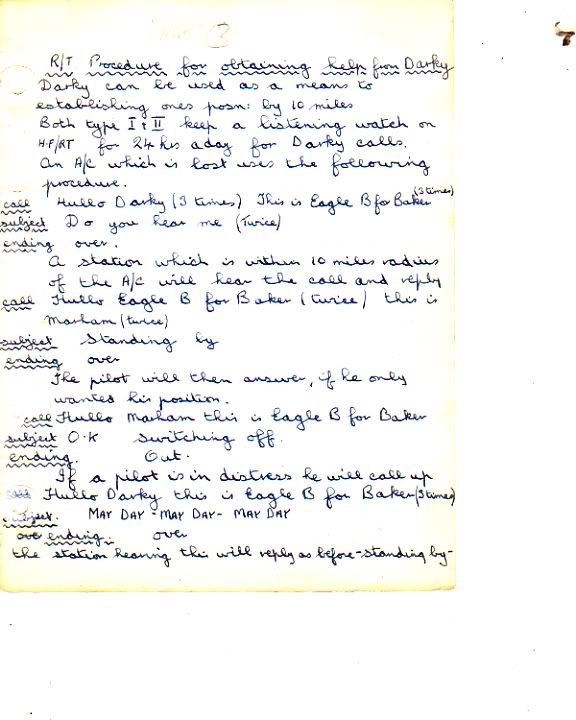 3
7
R/T Procedure for obtaining help from Darky
Darky can be used as a means to
establishing ones posn: by 10 miles
Both type I & II keep a listening watch on
H.F/RT for 24 hrs a day for Darky calls.
An A/C which is lost uses the following
procedure.
call Hullo Darky (3 times) This is Eagle B for Baker (3 times)
subject Do you hear me (Twice)
ending over.
A station which is within 10 miles radius
of the A/C will hear the call and reply
call Hullo Eagle B for Baker (twice) this is
Marham (twice)
subject Standing by
ending over
The pilot will then answer, if he only
wanted his position.
call Hullo Marham this is Eagle B for Baker
subject O.K switching off.
ending. Out.
If a pilot is in distress he will call up
call Hullo Darky this is Eagle B for Baker (3 times)
subject. MAY DAY - MAY DAY - MAY DAY
over ending. over
the station hearing this will reply as before - standing by -